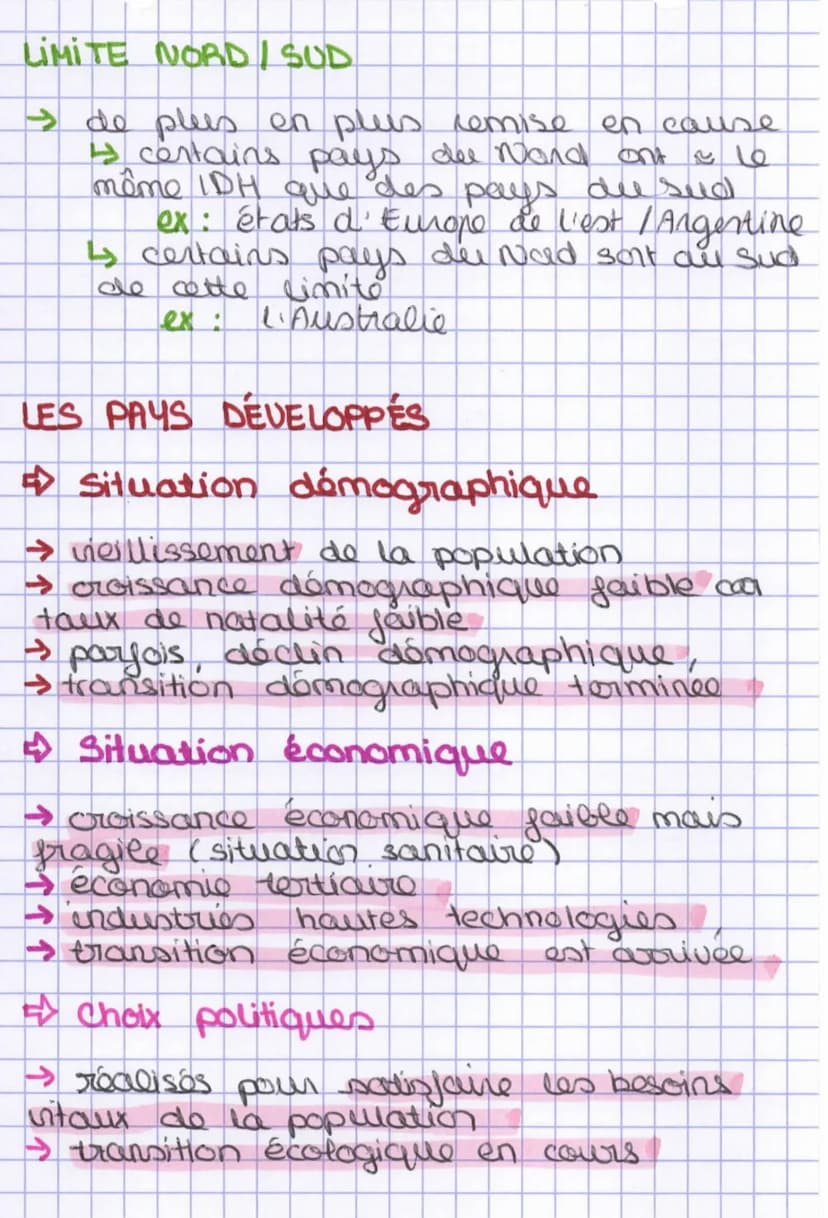 LIMITE NORD / SUD
→ de plus en plus remise en cause
↳ certains pays du Nord ont ≈ le
même IDH que des pays du sud
ex : états d'Europe de l'est / Argentine
↳ certains pays du Nord sont au Sud
de cette limite
ex : l'Australie
LES PAYS DÉVELOPPÉS
⇨ Situation démographique
→ vieillissement de la population
→ croissance démographique faible car
taux de natalité faible
→ parfois, déclin démographique,
→ transition démographique terminée
⇨ Situation économique
→ croissance économique faible mais
fragile (situation sanitaire)
→ économie tertiaire
→ industries hautes technologies,
→ transition économique est arrivée
⇨ Choix politiques
→ réalisés pour satisfaire les besoins
vitaux de la population
→ transition écologique en cours